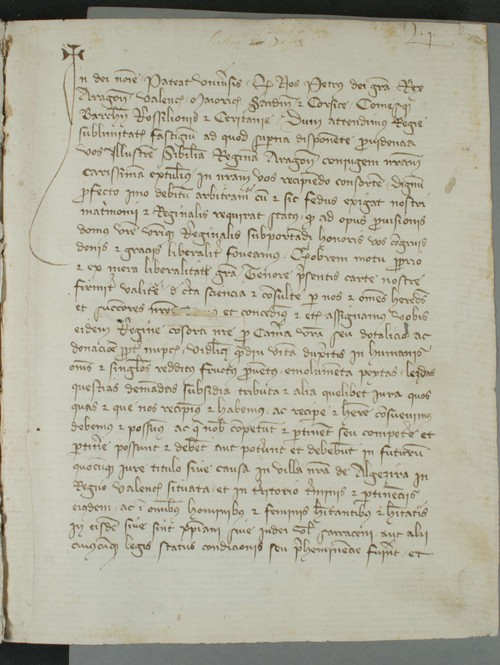 In dei noīe Pateat univ̄sis q̄ Nos Petrus dei grā Rex
Aragoń Valenc̄ Maioric̄ Sardiń et Corsice Comesq̧
Barchń Rossilionis et Ceritanie Dum attendimus Regie
sublimitat̄ fastigium ad quod superna disponēte providencia
vos Illustrē Sibiliā Reginā Aragoń coniugem nrām
carissimā extulim̄ in nrām vos recipiendo consortē dignū
profecto imo debitū arbitram̄ cū et sic fedus exigat nostri
mat̄monii et Reginalis requirat status q̄ ad opus provisionis
domus vrē utiq̧ Reginalis supportandi honoris vos congruis
donis et graciis liberalit̄ foveamus Quobrem motu pprio
et ex mera liberalitate grā Tenore p̄sentis carte nostre
firmit̄ valit̄e d c̄ta sciencia et cōsulte p nos et omēs heredes
et successores nrōs et concedim̄ et assignamus vobis
eidem Regine cosorti nrē p Camā vrā seu dotalicio ac
donacione ppt̄ nupc̄ vidlic̄ q̄diu vitā dux̄itis in humanis
oms et singlos redditus fructus pvetus emolumēta peytas leudas
questias demādas subsidia tributa et alia quelibet iura quos
quas et que nos recipim̄ et habemus ac recipe et here cōsuevimus
debemus et possum̄ ac q nob̄ cōpetūt et ptinēt seu compet̄e et
ptin̄e possunt et debēt aut pot̄unt et debebūt in futurū
quocūq̧ iure titulo sive causa in villa nrā de Algezira in
Regno Valenc̄ situata et in t̄ritorio t̄minis et ptinēciis
eiusdem ac ī omibus hominibus et feminis hītantibus et hītatis
in eisdē sive sint xp̄iani sive iudei vl̄ sarraceni aut alii
cuiuscūq̧ legis status condicionis seu p̄heminēcie fuerīt et